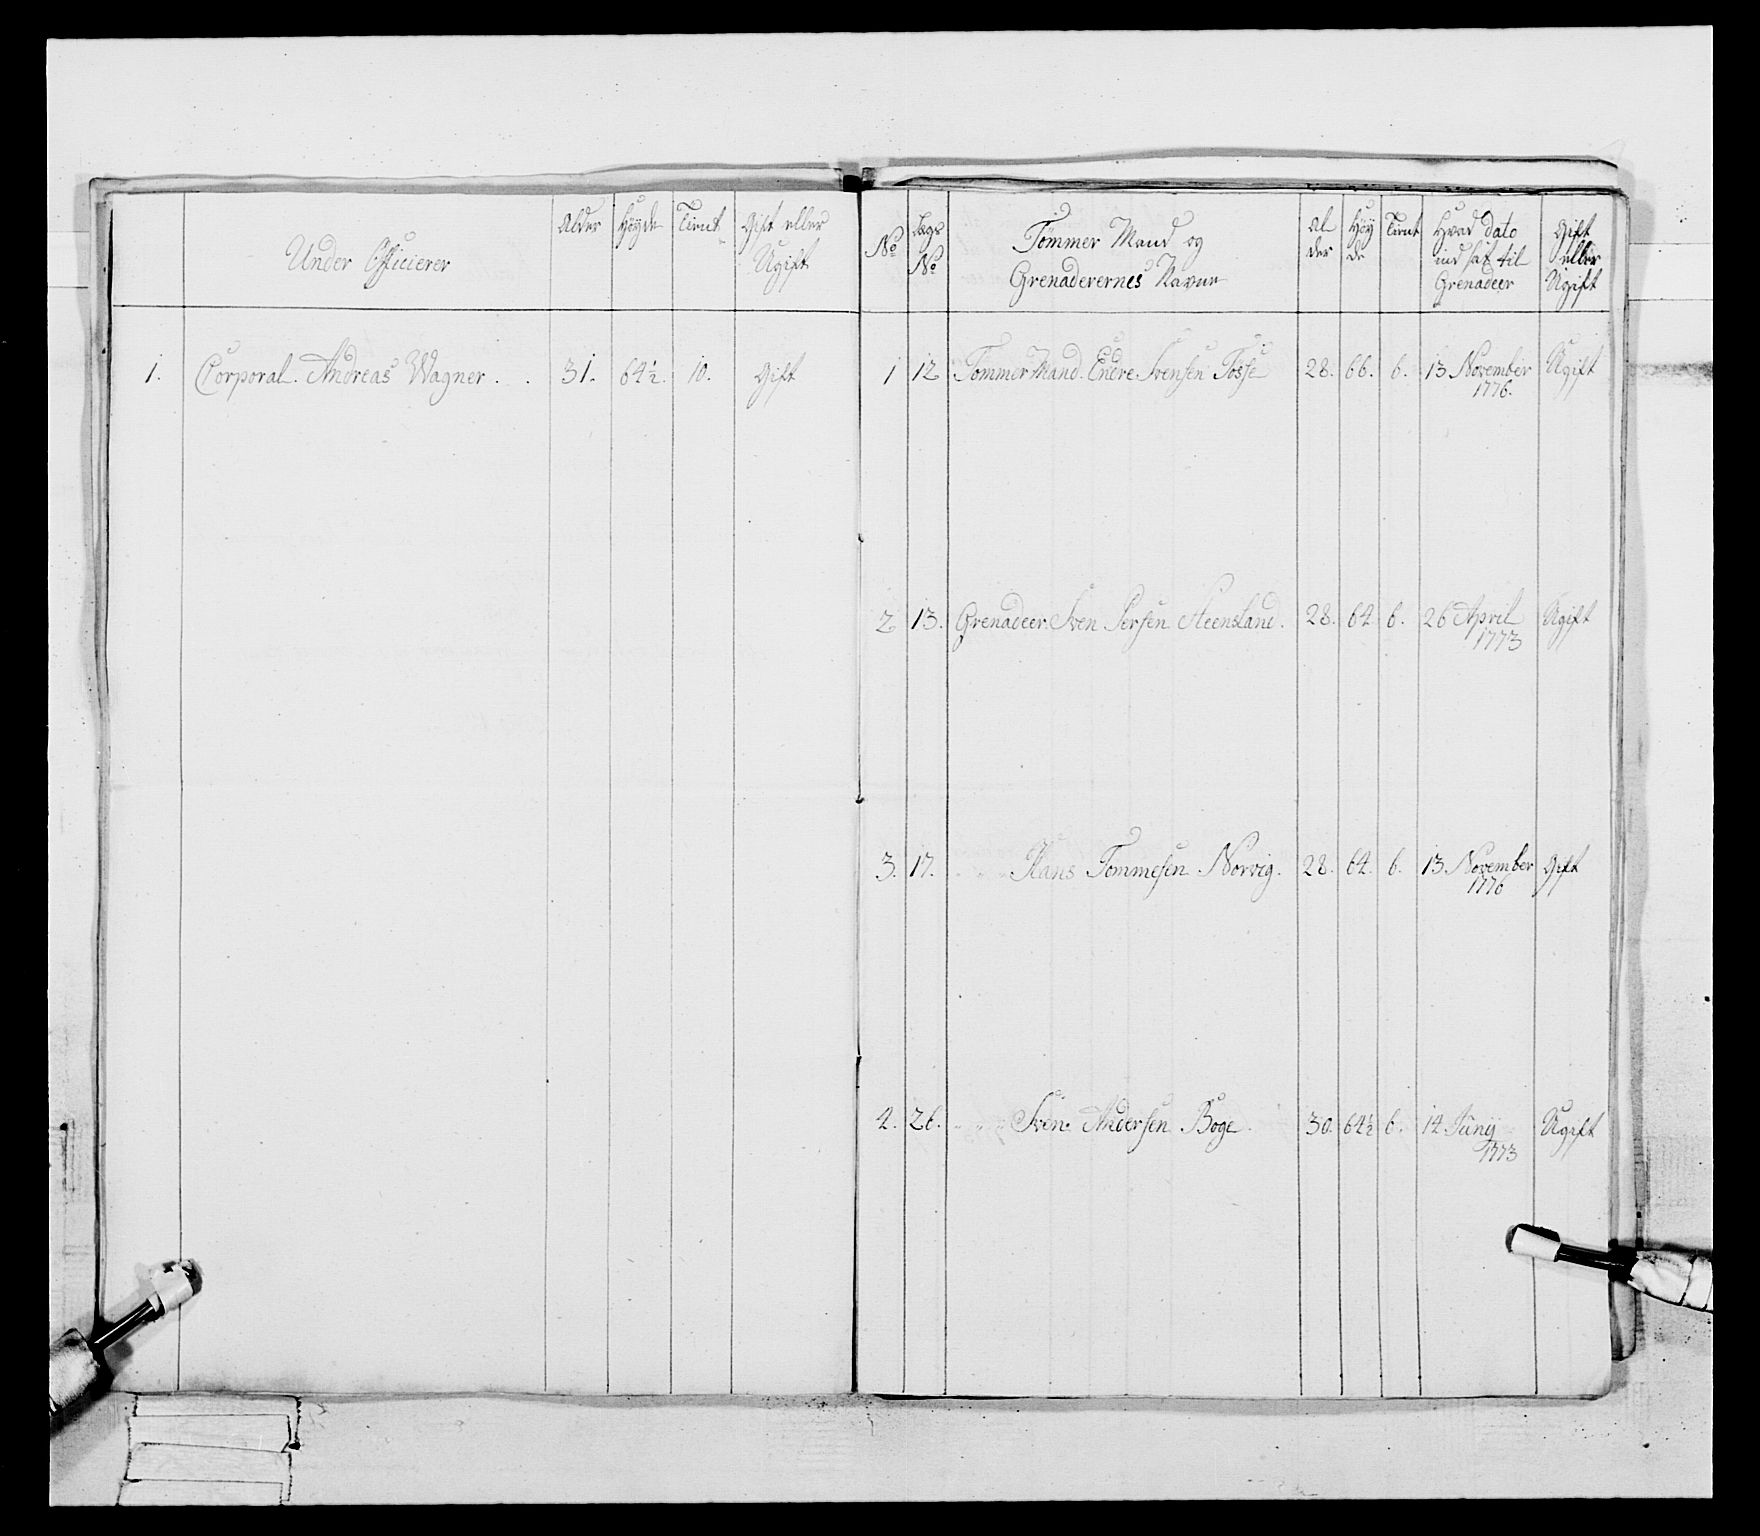 Under Officierer | Alder | Höyde | Tient | Gift eller Ugift
1. | Corporal. Andreas Wagner . . | 31. | 64½. | 10. | Gift
No | Lags No | Tömmer Mand og Grenaderernes Navne | Al der | Höy de | Tient | Hvad Dato ind sat til Grenadeer | Gift eller Ugift
1 | 12 | Tömmer Mand. Endre Svensen Fosse | 28. | 66. | 6. | 13 November 1776. | Ugift
2 | 13. | Grenadeer. Sven Persen Steensland. | 28. | 64 | 6. | 26 April 1773 | Ugift
3. | 17. | " " " Hans Tommesen Norvig. | 28. | 64. | 6. | 13. November 1776 | Gift
4. | 26. | " " " Sven Andersen Boge. | 30. | 64½ | 6. | 14 Junij 1773 | Ugift